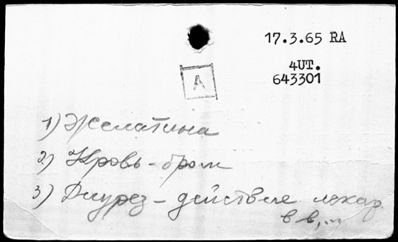 17.3.65 RA
4UT.
643301
A
1) Желатина
2) Кровь - бром
3) Диурез - действие лекар
в в,